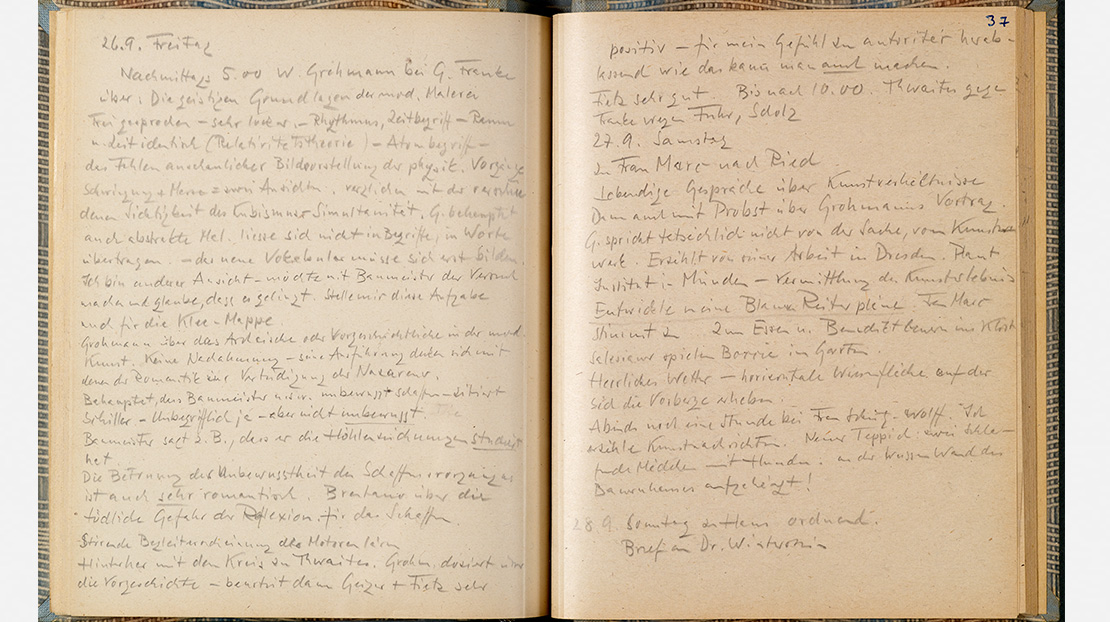 26.9. Freitag
Nachmittags 5.00 W. Grohmann bei G. Franke
über: Die geistigen Grundlagen der mod. Malerei
Frei gesprochen – sehr locker. – Rhythmus, Zeitbegriff – Raum
u. Zeit identisch (Relativitätstheorie) – Atombegriff –
das Fehlen anschaulicher Bildvorstellung der Physik. Vorgänge
Schwingung + Masse = zwei Ansichten. verglichen mit der verschie-
denen Sichtigkeit des Kubismus Simultanität. G. behauptet
auch abstrakte Mal. liesse sich nicht in Begriffe, in Worte
übertragen. – das neue Vokabular müsse sich erst bilden
Ich bin anderer Ansicht – möchte mit Baumeister den Versuch
machen und glaube, dass es gelingt. Stelle mir diese Aufgabe
auch für die Klee-Mappe.
Grohmann über das Archaische oder Vorgeschichtliche in der mod.
Kunst. Keine Nachahmung – seine Anführung decken sich mit
denen der Romantik zur Verteidigung der Nazarener.
Behauptet, dass Baumeister unbewusst schaffen – zitiert
Schiller – Unbegrifflich ja – aber nicht unbewusst.
Baumeister sagt z. B., dass er die Höhlenzeichnungen studiert
hat.
Die Betonung der Unbewusstheit des Schaffensvorganges
ist auch sehr romantisch. Brentano über die
tödliche Gefahr der Reflexion für das Schaffen.
Störende Begleiterscheinung des Motorenlärm
Hinterher mit dem Kreis zu Thwaites. Grohm. doziert über
die Vorgeschichte – beurteilt dann Geiger + Fietz sehr
37
positiv – für mein Gefühl zu autoritär herab-
lassend wie das kann man auch machen.
Fietz sehr gut. Bis nach 10.00. Thwaites gegen
Franke wegen Fuhr, Scholz
27.9. Samstag
zu Frau Marc nach Ried
Lebendige Gespräche über Kunstverhältnisse
Dann auch mit Probst über Grohmanns Vortrag.
G. spricht tatsächlich nicht von der Sache, vom Kunst-
werk. Erzählt von seiner Arbeit in Dresden. Plant
Institut in München – Vermittlung des Kunsterlebnis
Entwickle meine Blaue Reiter pläne Frau Marc
stimmt zu Zum Essen n. Benediktbeuern ins Klost.
Salesianer spielen Boccia im Garten.
Herrliches Wetter – horizontale Wiesenfläche auf der
sich die Vorberge erheben.
Abends noch eine Stunde bei Frau Ich
erzähle Kunstnachrichten. Neuer Teppich zwei schla-
fende Mädchen mit Hunden. an der weissen Wand des
Bauernhauses aufgehängt!
28.9. Sonntag zu Haus ordnend.
Brief an Dr.